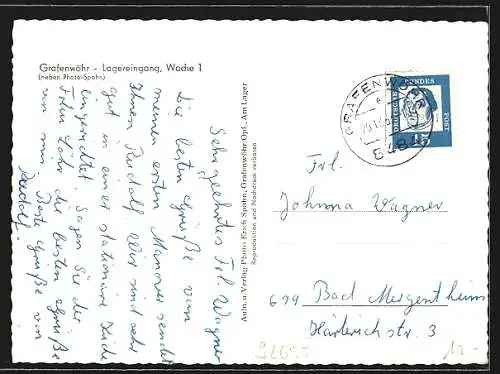 Grafenwöhr - Lagereingang, Wache 1
(neben Photo-Spahn)
Sehr geehrtes Frl. Wagner
Die besten Grüße vom
meinem ersten Manöver sendet
Ihnen Rudolf. Wir sind sehr
gut in einer stationäre Küche
eingerichtet. Sagen Sie der
Frau Löhr die besten Grüße
von mir. Beste Grüße von
Rudolf.
Aufn. u. Verlag Photo Erich Spahn, Grafenwöhr Opf., Am Lager
Reproduktion und Nachdruck verboten
GRAFENWÖHR
8484
DEUTSCHE BUNDESPOST
15
Frl.
Johanna Wagner
699 Bad Mergentheim
Härterichstr. 3
10.-